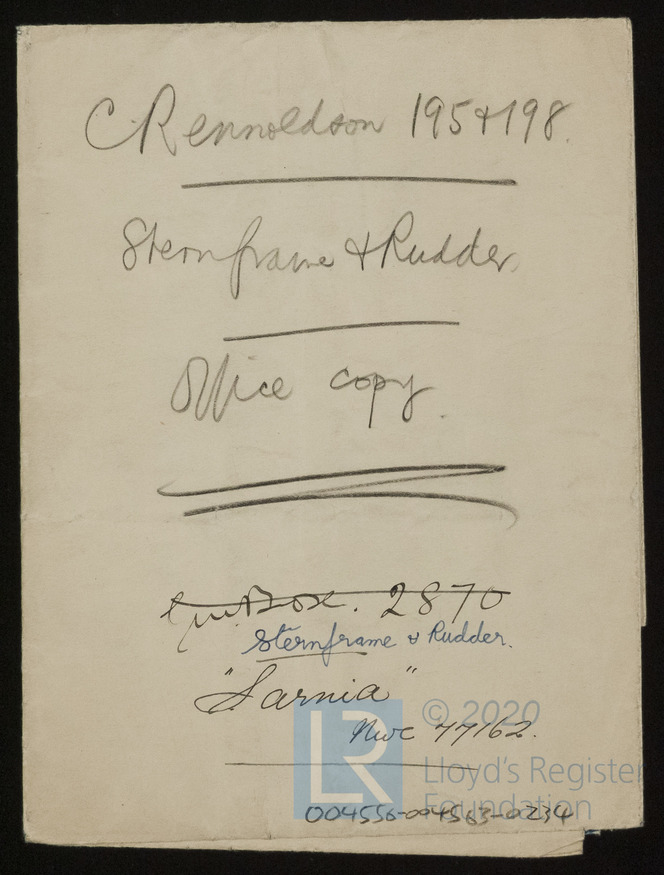 C. Rennoldson 195 & 198.
Sternframe & Rudder
Office copy.
Box. 2870
Sternframe & Rudder.
"Sarnia"
Nwc 77162.
LR
© 2020
Lloyd's Register
Foundation
004556-004563-0234